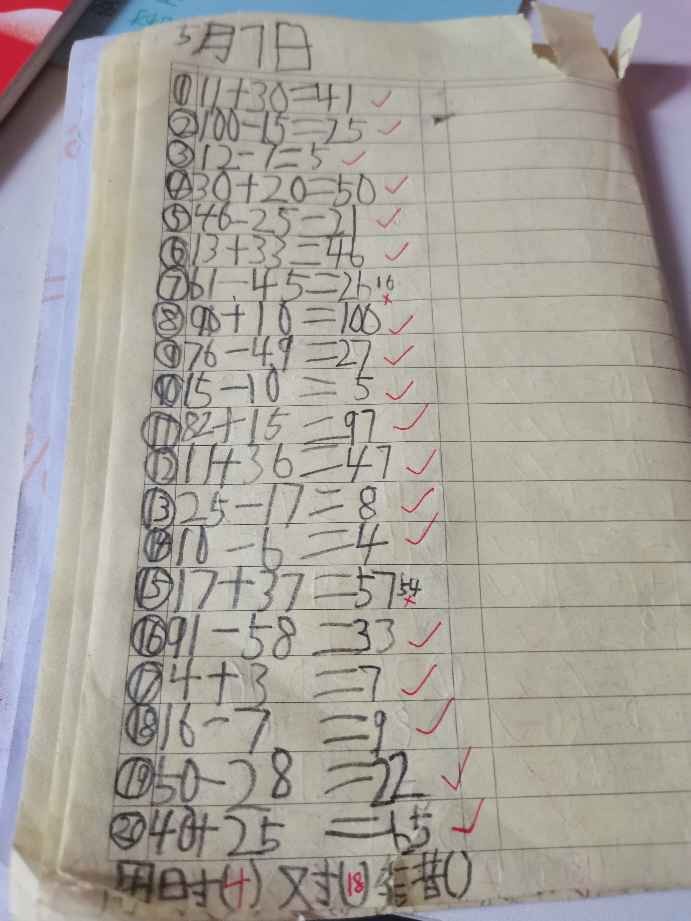 5月7日
① 11+30=41 ✓
② 100-15=75 ✓
③ 12-7=5 ✓
④ 30+20=50 ✓
⑤ 46-25=21 ✓
⑥ 13+33=46 ✓
⑦ 61-45=26 16 ×
⑧ 90+10=100 ✓
⑨ 76-49=27 ✓
⑩ 15-10=5 ✓
⑪ 82+15=97 ✓
⑫ 11+36=47 ✓
⑬ 25-17=8 ✓
⑭ 10-6=4 ✓
⑮ 17+37=57 54 ×
⑯ 91-58=33 ✓
⑰ 4+3=7 ✓
⑱ 16-7=9 ✓
⑲ 50-28=22 ✓
⑳ 40+25=65 ✓
用时() 对(18) 错()